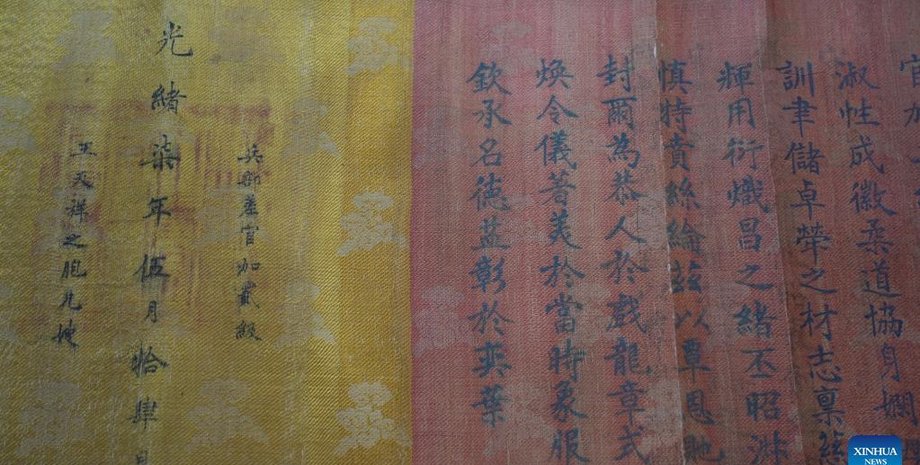 淑性成徽柔道協身嫻
訓聿儲卓犖之材志稟
輝用衍熾昌之緒丕昭淑
慎特賁絲綸茲以覃恩貤
封爾為恭人於戲龍章式
煥令儀著美於當時象服
欽承名德益彰於奕葉
兵部差官加貳級
光緒柒年伍月拾肆日
王天祥之胞兄嫂
XINHUA
NEWS